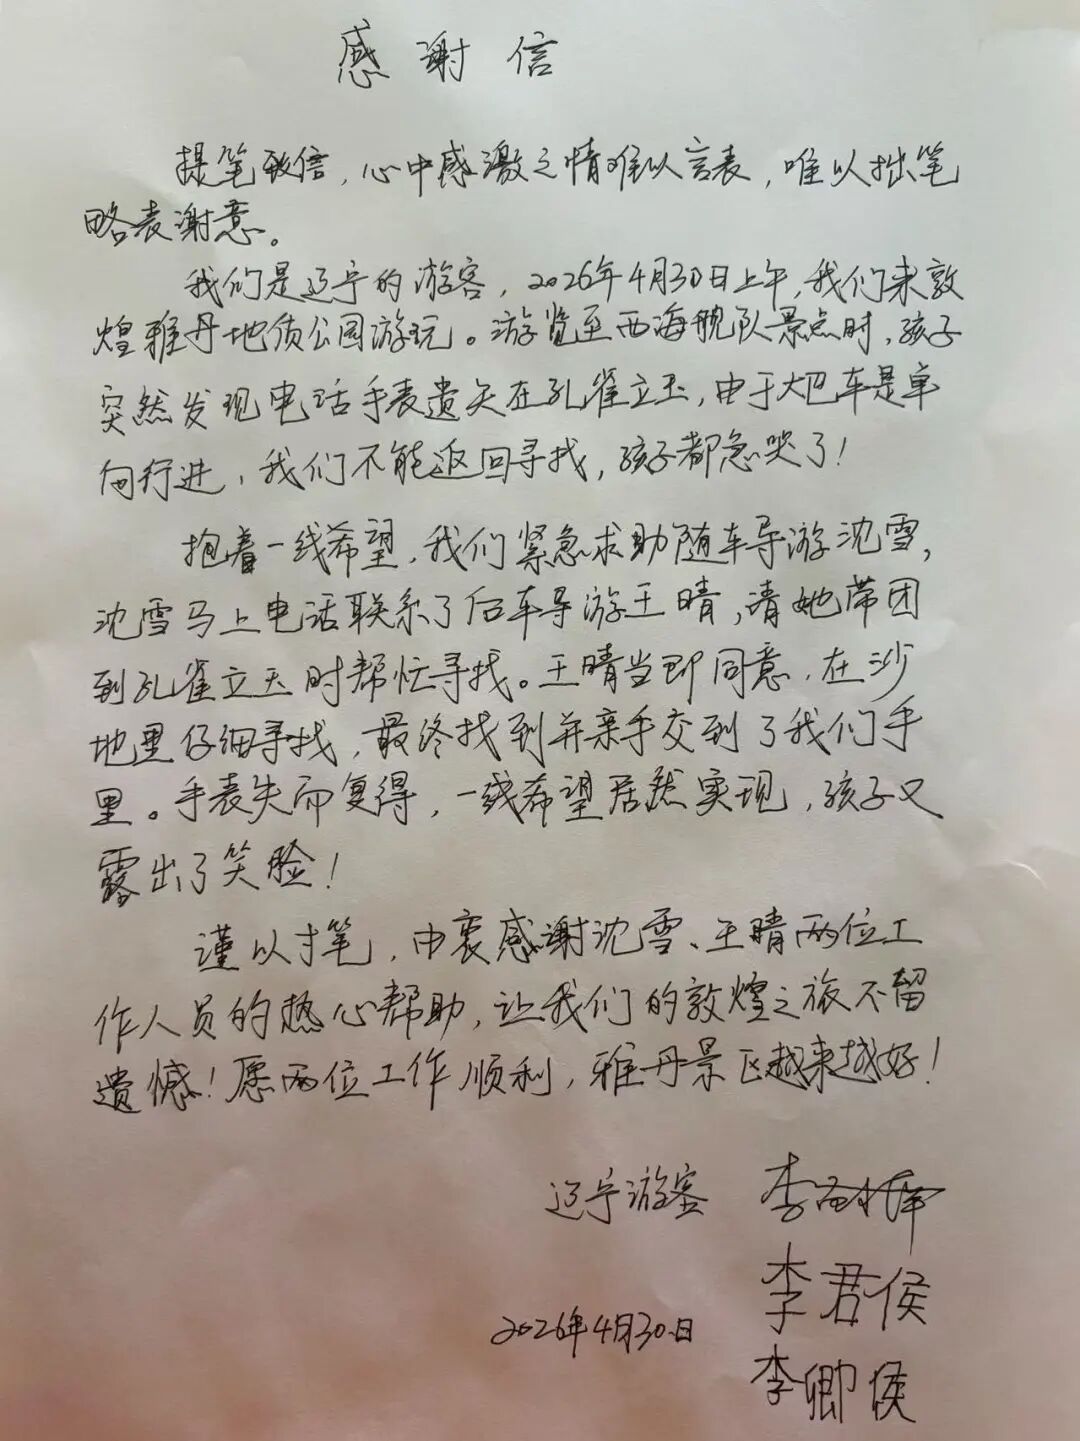 感谢信
提笔致信，心中感激之情难以言表，唯以拙笔
略表谢意。
我们是辽宁的游客，2026年4月30日上午，我们来敦
煌雅丹地质公园游玩。游览至西海舰队景点时，孩子
突然发现电话手表遗失在孔雀立玉，由于大巴车是单
向行进，我们不能返回寻找，孩子都急哭了！
抱着一线希望，我们紧急求助随车导游沈雪，
沈雪马上电话联系了后车导游王晴，请她带团
到孔雀立玉时帮忙寻找。王晴当即同意，在沙
地里仔细寻找，最终找到并亲手交到了我们手
里。手表失而复得，一线希望居然实现，孩子又
露出了笑脸！
谨以寸笔，由衷感谢沈雪、王晴两位工
作人员的热心帮助，让我们的敦煌之旅不留
遗憾！愿两位工作顺利，雅丹景区越来越好！
辽宁游客 李
李君侯
2026年4月30日
李卿侯